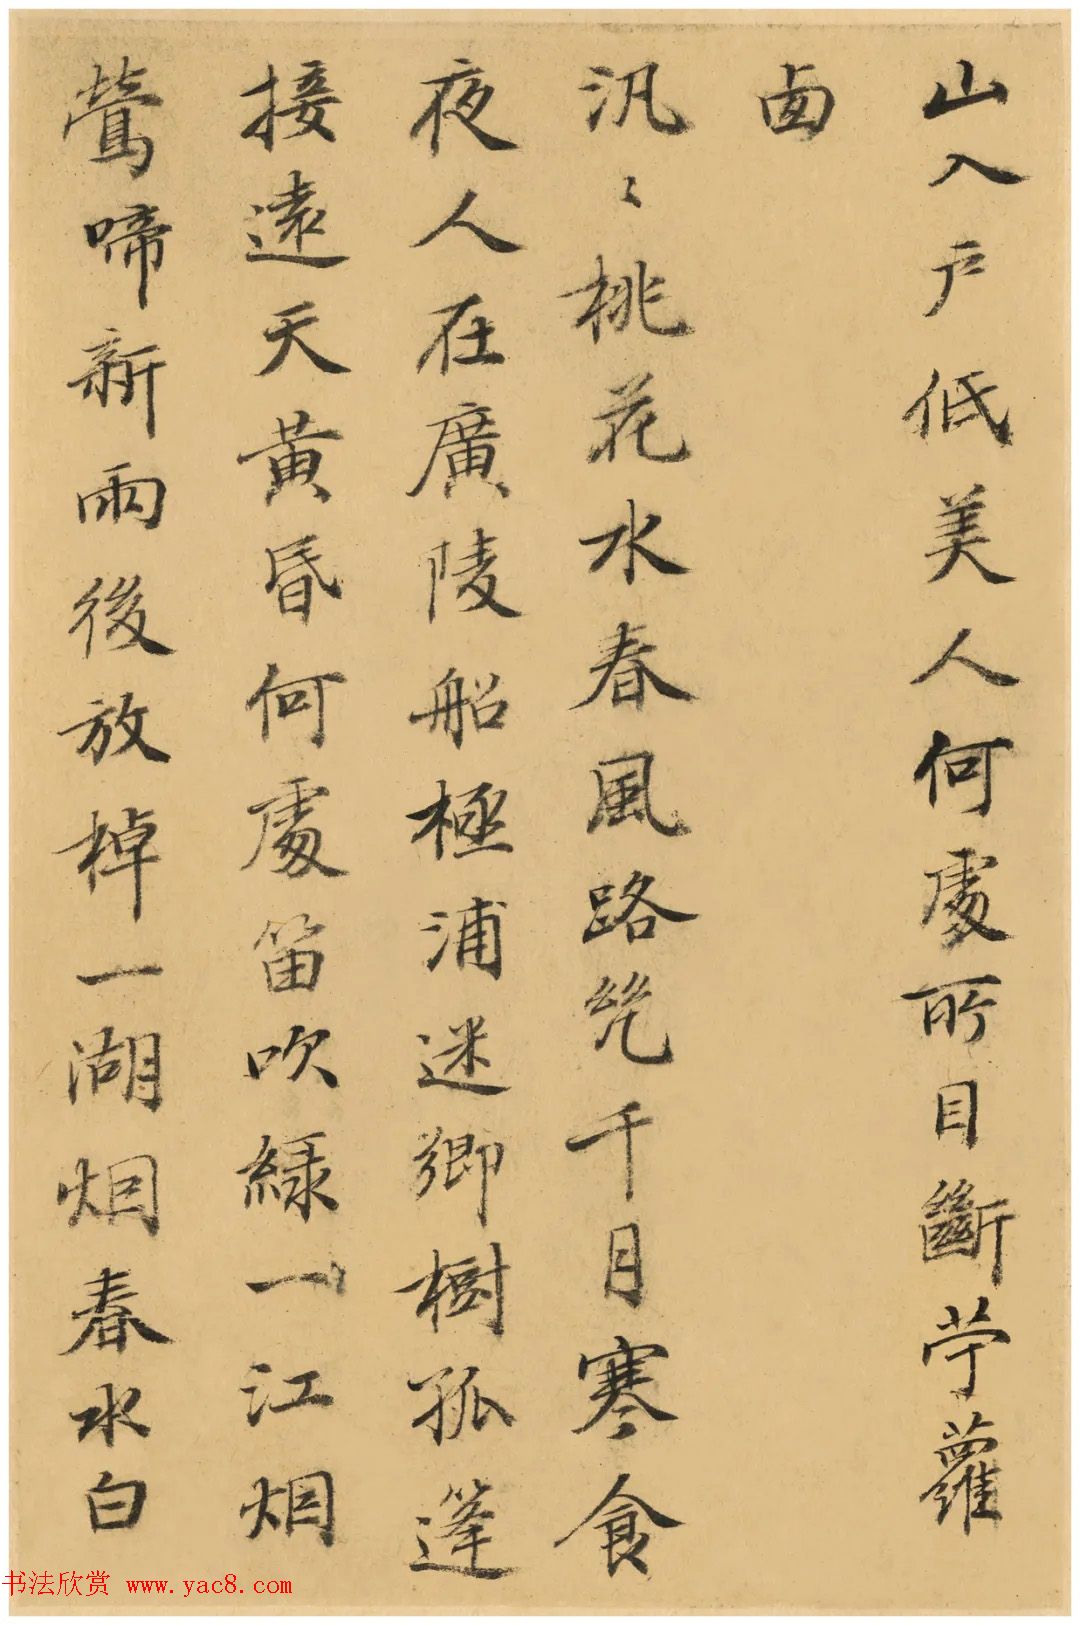 山入戶低美人何處所目斷苧蘿
西
汎〻桃花水春風路绝千月寒食
夜人在廣陵船極浦迷鄉樹孤篷
接遠天黃昏何處笛吹綠一江烟
鶯啼新雨後放棹一湖烟春水白
书法欣赏 www.yac8.com